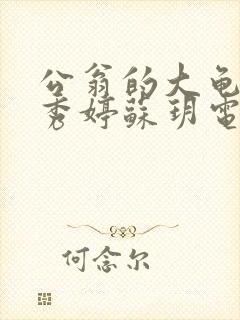 公翁的大龟
秀婷蘇玥電
何念尔